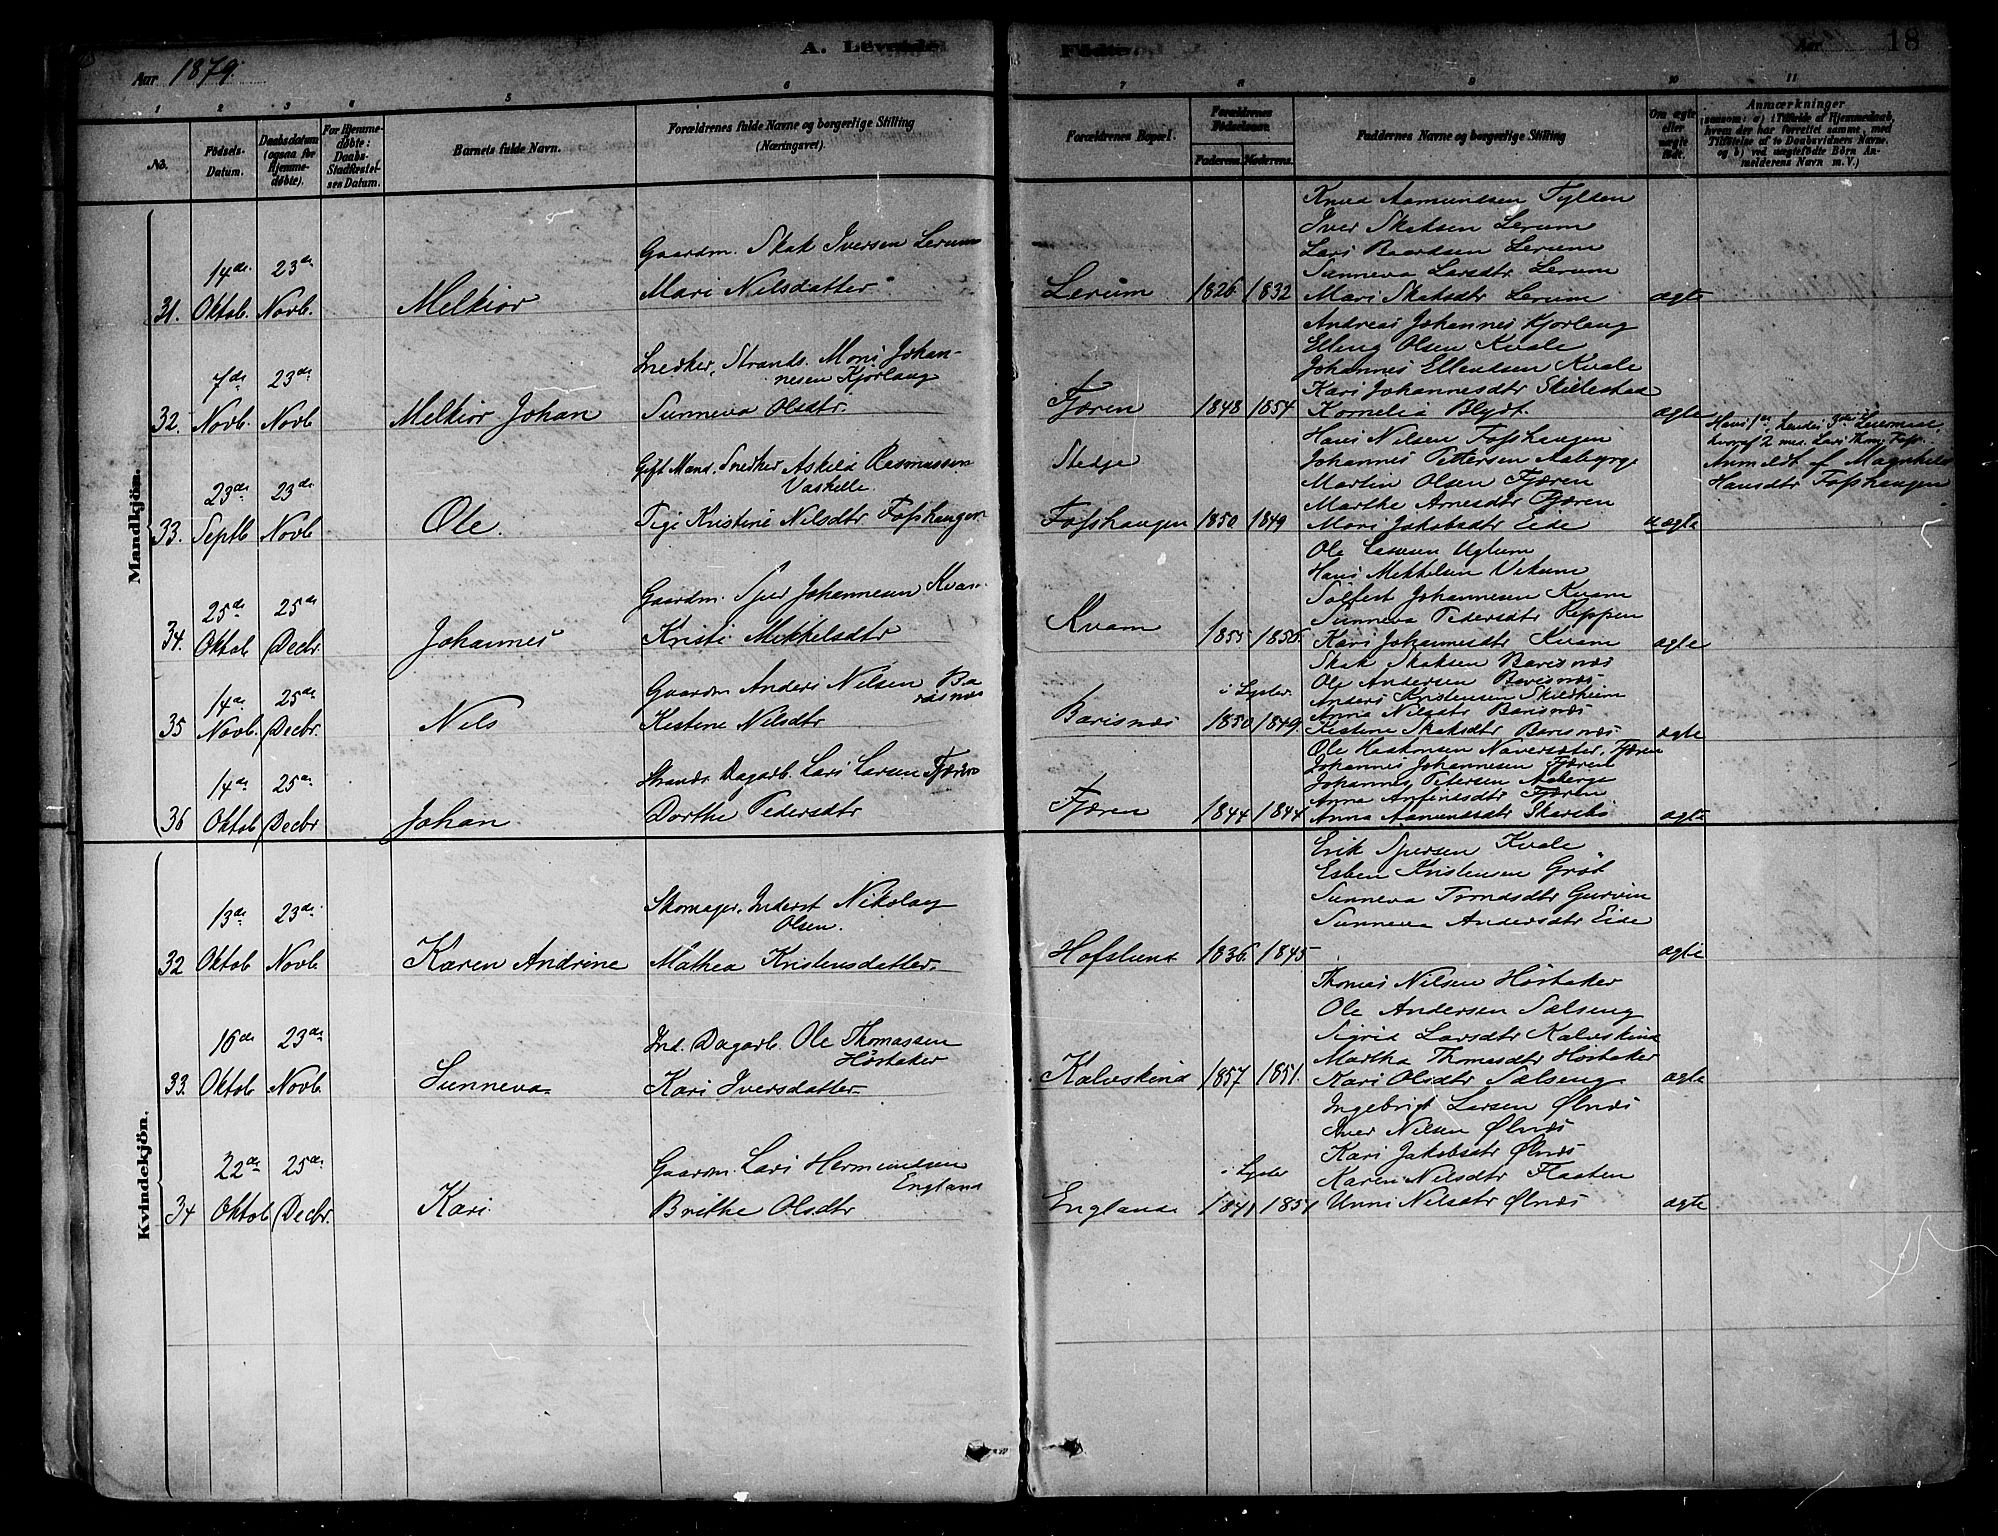 A. Levende Fødte.
Aar 1879.
Aar 18
1 2 3 4 5 6 7 8 9 10 11
No.
Födsels-Datum.
Daabsdatum (ogsaa for Hjemmedöbte).
For Hjemmedöbte: Daabs-Stadfæstelses Datum.
Barnets fulde Navn.
Forældrenes fulde Navne og borgerlige Stilling (Næringsvei).
Forældrenes Bopæl.
Forældrenes Födselsaar.
Faderens. Moderens.
Faddernes Navne og borgerlige Stilling
Om ægte eller uægte född.
Anmærkninger saasom: a) i Tilfælde af Hjemmedaab, hvem der har forrettet samme, med Tilföielse af to Daabsvidners Navne, og b) ved uægtefödte Börn Anmelderens Navn m. V.)
Mandkjön.
31. 14de Oktob. 23de Novb.
Melkior
Gaardm. Skak Iversen Lerum
Mari Nilsdatter
Lerum 1826 1832
Knud Aamundsen Fylden
Iver Skaksen Lerum
Lars Baardsen Lerum
Sunneva Larsdtr Lerum
Mari Skaksdtr Lerum
ægte
32. 7de Novb. 23de Novb
Melkior Johan
Snedker, Strands. Mons Johannesen Kjørlaug
Sunneva Olsdtr.
Fjæren 1848 1854
Andreas Johannes Kjørlaug
Elling Olsen Kvale
Johannes Ellendsen Kvale
Kari Johannesdtr Skillestad
Kornelia Blydt.
ægte
33. 23de Septb 23de Novb
Ole.
Gift Mand. Snedker Askild Rasmussen
Kristine Nilsdtr Fosshaugen
Stedje
Fosshaugen 1850 1849
Hans Nilsen Fosshaugen
Johannes Pettersen Aaberge
Martin Olsen Fjæren
Marthe Arnesdtr Fjæren
Mari Jakobsdtr Eide
uægte
Hans 1ste, hendes 3die Leiermaal,
hvoraf 2 med Lars Thom. Foss.
Anmeldt af
Hansdtr Fosshaugen
34. 25de Oktob 25de Decbr
Johannes
Gaardm. Sjur Johannesen Kvam
Kristi Mikkelsdtr
Kvam 1855 1856.
Ole Larsen Uglum
Hans Mikkelsen Vikum
Solfest Johannesen Kvam
Sunneva Pedersdtr Reppen
Kari Johannesdtr Kvam
ægte
35 14de Novb. 25de Decbr.
Nils
Gaardm Anders Nilsen Barsnæs
Kestine Nilsdtr
Barisnæs
i Lyster
1850 1849.
Skak Skaksen Barisnæs
Ole Andersen Barisnæs
Anders Kristensen Skildheim
Anna Nilsdtr Barisnæs
Kestine Skaksdtr Barisnæs
ægte
36 14de Oktob 25de Decbr
Johan
Strands. Dagarb. Lars Larsen Fjæren
Dorthe Pedersdtr
Fjæren 1844 1844
Ole Haakonsen Navarsæter, Fjæren
Johannes Johannesen Fjæren
Johannes Petersen Aaberge
Anna Anfinsdtr Fjæren
Anna Aamundsdtr Skarsbø
ægte
Kvindekjön.
32 13de Oktob 23de Novb
Karen Andrine
Skomager, Inderst Nikolay Olsen.
Mathea Kristensdatter
Hofslund 1836. 1845
Erik Sjursen Kvale
Esben Kristensen Grøt
Sunneva Trondsdtr Gurvin
Sunneva Andersdtr Eide
ægte
33. 16de Oktob 23de Novb.
Sunneva
Ind. Dagarb. Ole Thomassen Høstaker
Kari Iversdatter
Kalvskind 1857 1851.
Thomas Nilsen Høstaker
Ole Andersen Sælseng
Sigrid Larsdtr Kalvskind
Martha Thomasdtr Høstaker
Kari Olsdtr Sælseng
ægte
34 22de Oktob 25de Decbr.
Kari
Gaardm. Lars Hermundsen England
Brithe Olsdtr
England
i Lyster
1841 1851
Ingebrigt Larsen Ølnæs
Iver Nilsen Ølnæs
Kari Jakobsdtr Ølnæs
Karen Nilsdtr Flaaten
Unni Nilsdtr Ølnæs
ægte